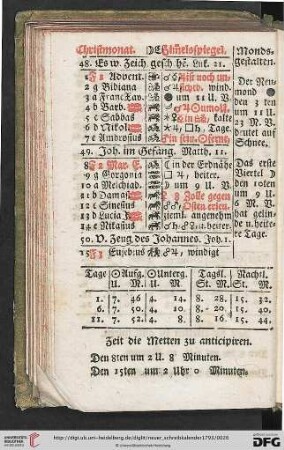 Christmonat. Himelsspiegel. Monds-
gestalten.
48. Es w. Zeich. gesch. Luk. 21.
1 Advent. noch un-
2 g Bibiana sichtb. wind.
3 a Franc. Xav. um 11 U. V.
4 b Barb.
5 c Sabbas kalte
6 d Nikol.
7 e Ambrosius
Der Neu-
mond
den 3 ten
um 11 U.
23 M. V.
brutet auf
Schnee.
49. Joh. im Gefäng. Matth. 11.
8 Mar. E. in der Erdnähe
9 g Gorgonia heiter.
10 a Melchiad. um 9 U. V
11 b Damas. Zolle gegen
12 c Sinesius Osten erleu.
13 d Lucia ziemL. angenehm
14 e Nikasius u. heiter.
Das erste
Viertel
den 10ten
um 9 U.
6 M. V.
hat gelin-
de u. heite-
re Tage.
50. V. Zeug. des Johannes. Joh. 1.
15 Euseb. us windigt
Tage Aufg. Unterg. Tagsl. Nachtl.
U. M. U. M. St. M. St. M.
1. 7. 46 4. 14. 8. 28. 15. 32.
6. 7. 50. 4. 10. 8. 20. 15. 40.
11. 7. 52. 4. 8. 8. 16. 15. 44.
Zeit die Metten zu anticipiren.
Den 8ten um 2 U. 8 Minuten.
Den 15ten um 2 Uhr 0 Minuten.
http://digi.ub.uni-heidelberg.de/diglit/neuer_schreibkalender1793/0028
© Universitätsbibliothek Heidelberg
gefördert durch die
DFG